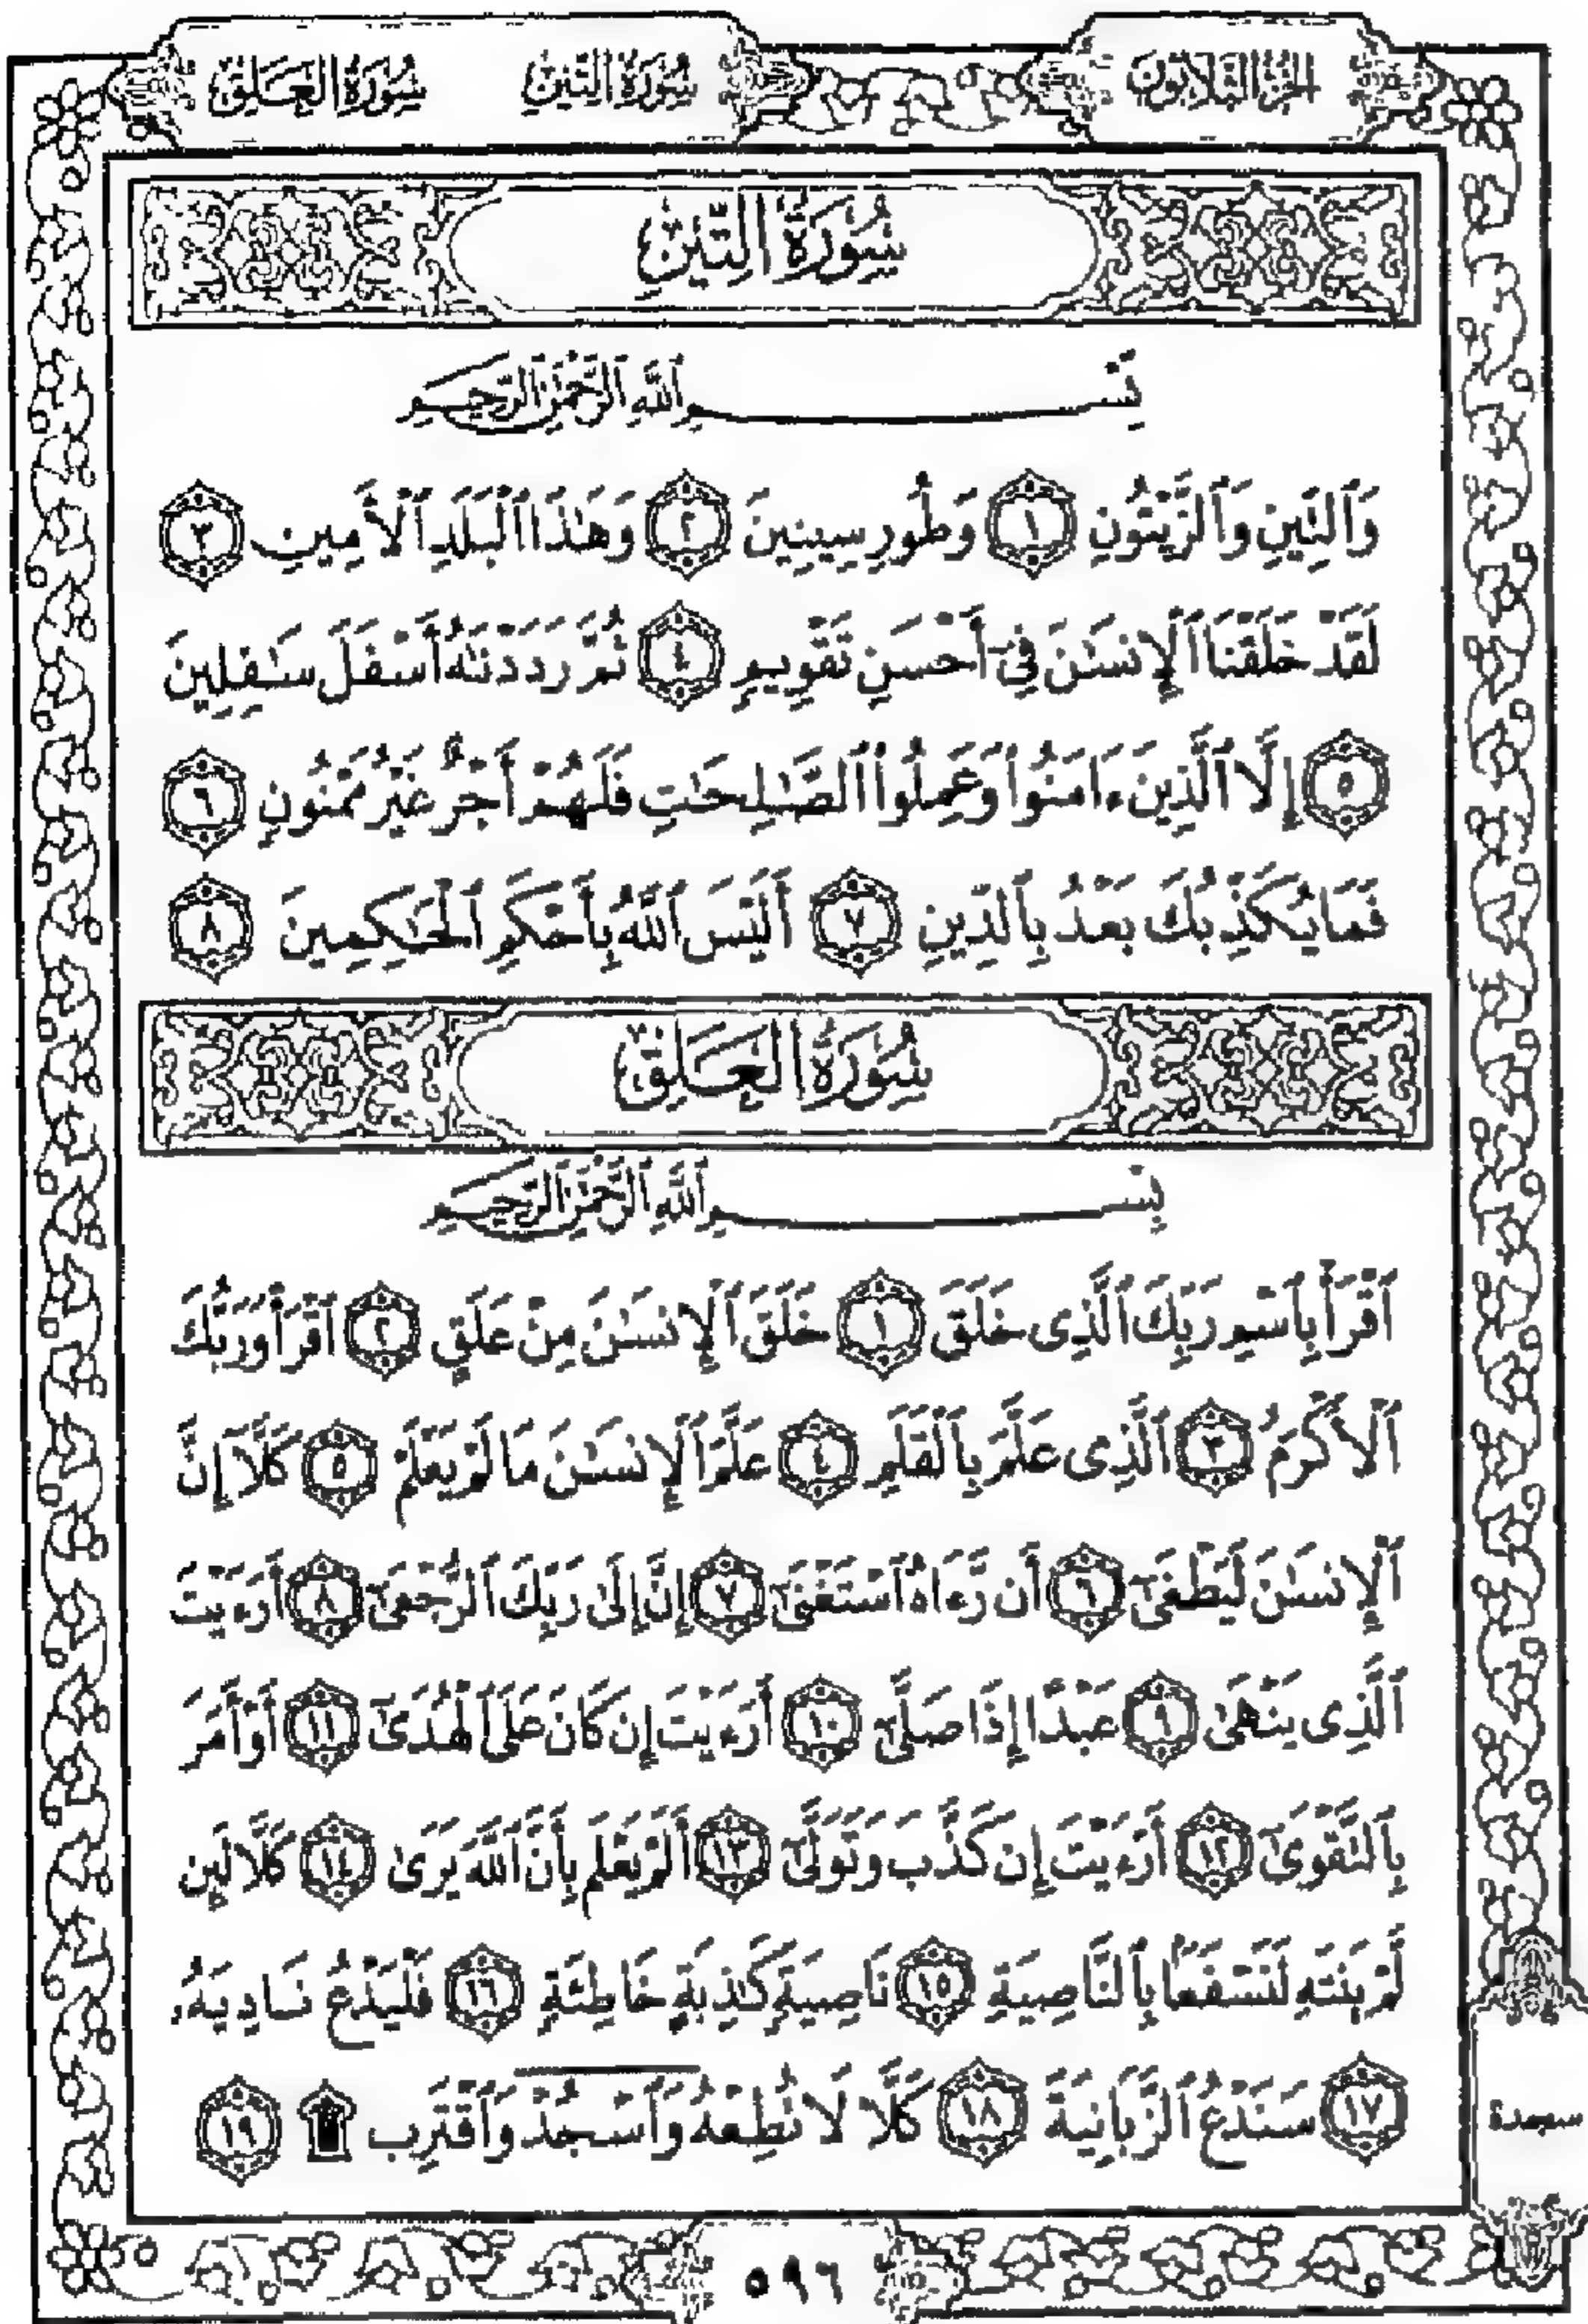 الجزء الثلاثون سورة التين سورة العلق
سُورَةُ التِّينِ
بِسْمِ ٱللَّهِ ٱلرَّحْمَٰنِ ٱلرَّحِيمِ
وَٱلتِّينِ وَٱلزَّيْتُونِ ١ وَطُورِ سِينِينَ ٢ وَهَٰذَا ٱلْبَلَدِ ٱلْأَمِينِ ٣
لَقَدْ خَلَقْنَا ٱلْإِنسَٰنَ فِىٓ أَحْسَنِ تَقْوِيمٍ ٤ ثُمَّ رَدَدْنَٰهُ أَسْفَلَ سَٰفِلِينَ
٥ إِلَّا ٱلَّذِينَ ءَامَنُوا۟ وَعَمِلُوا۟ ٱلصَّٰلِحَٰتِ فَلَهُمْ أَجْرٌ غَيْرُ مَمْنُونٍ ٦
فَمَا يُكَذِّبُكَ بَعْدُ بِٱلدِّينِ ٧ أَلَيْسَ ٱللَّهُ بِأَحْكَمِ ٱلْحَٰكِمِينَ ٨
سُورَةُ العَلَقِ
بِسْمِ ٱللَّهِ ٱلرَّحْمَٰنِ ٱلرَّحِيمِ
ٱقْرَأْ بِٱسْمِ رَبِّكَ ٱلَّذِى خَلَقَ ١ خَلَقَ ٱلْإِنسَٰنَ مِنْ عَلَقٍ ٢ ٱقْرَأْ وَرَبُّكَ
ٱلْأَكْرَمُ ٣ ٱلَّذِى عَلَّمَ بِٱلْقَلَمِ ٤ عَلَّمَ ٱلْإِنسَٰنَ مَا لَمْ يَعْلَمْ ٥ كَلَّآ إِنَّ
ٱلْإِنسَٰنَ لَيَطْغَىٰٓ ٦ أَن رَّءَاهُ ٱسْتَغْنَىٰٓ ٧ إِنَّ إِلَىٰ رَبِّكَ ٱلرُّجْعَىٰٓ ٨ أَرَءَيْتَ
ٱلَّذِى يَنْهَىٰ ٩ عَبْدًا إِذَا صَلَّىٰٓ ١٠ أَرَءَيْتَ إِن كَانَ عَلَى ٱلْهُدَىٰٓ ١١ أَوْ أَمَرَ
بِٱلتَّقْوَىٰٓ ١٢ أَرَءَيْتَ إِن كَذَّبَ وَتَوَلَّىٰٓ ١٣ أَلَمْ يَعْلَم بِأَنَّ ٱللَّهَ يَرَىٰ ١٤ كَلَّا لَئِن
لَّمْ يَنتَهِ لَنَسْفَعًۢا بِٱلنَّاصِيَةِ ١٥ نَاصِيَةٍ كَٰذِبَةٍ خَاطِئَةٍ ١٦ فَلْيَدْعُ نَادِيَهُۥ
١٧ سَنَدْعُ ٱلزَّبَانِيَةَ ١٨ كَلَّا لَا تُطِعْهُ وَٱسْجُدْ وَٱقْتَرِب ۩ ١٩
سجدة
٥٩٦